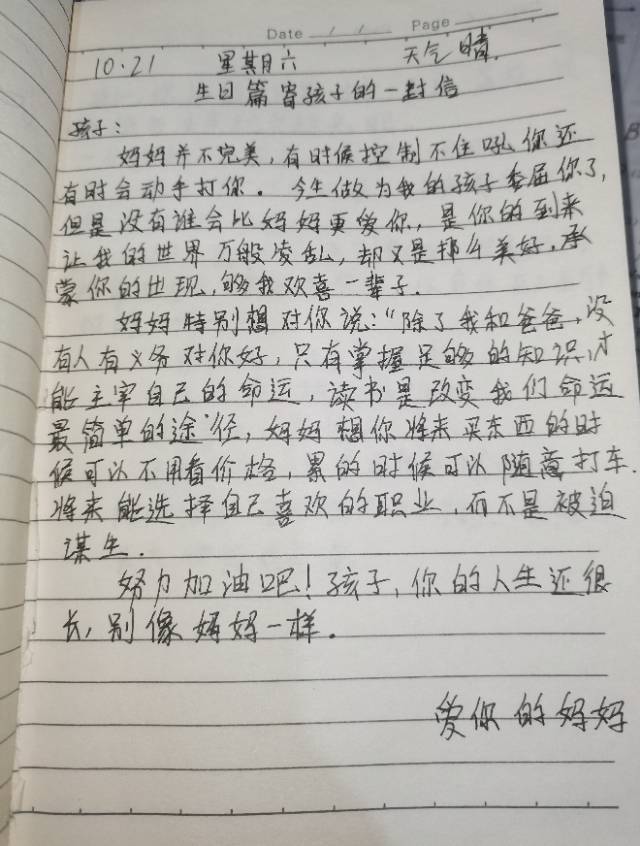 Date / / Page
10.21 星其月六 天气晴.
生日篇寄孩子的一封信
孩子:
妈妈并不完美,有时候控制不住吼你还
有时会动手打你. 今生做为我的孩子委屈你了,
但是没有谁会比妈妈更爱你,是你的到来
让我的世界万般凌乱,却又是那么美好,承
蒙你的出现,够我欢喜一辈子.
妈妈特别想对你说:“除了我和爸爸,没
有人有义务对你好,只有掌握足够的知识,才
能主宰自己的命运,读书是改变我们命运
最简单的途径,妈妈想你将来买东西的时
候可以不用看价格,累的时候可以随意打车.
将来能选择自己喜欢的职业,而不是被迫
谋生.
努力加油吧!孩子,你的人生还很
长,别像妈妈一样.
爱你的妈妈